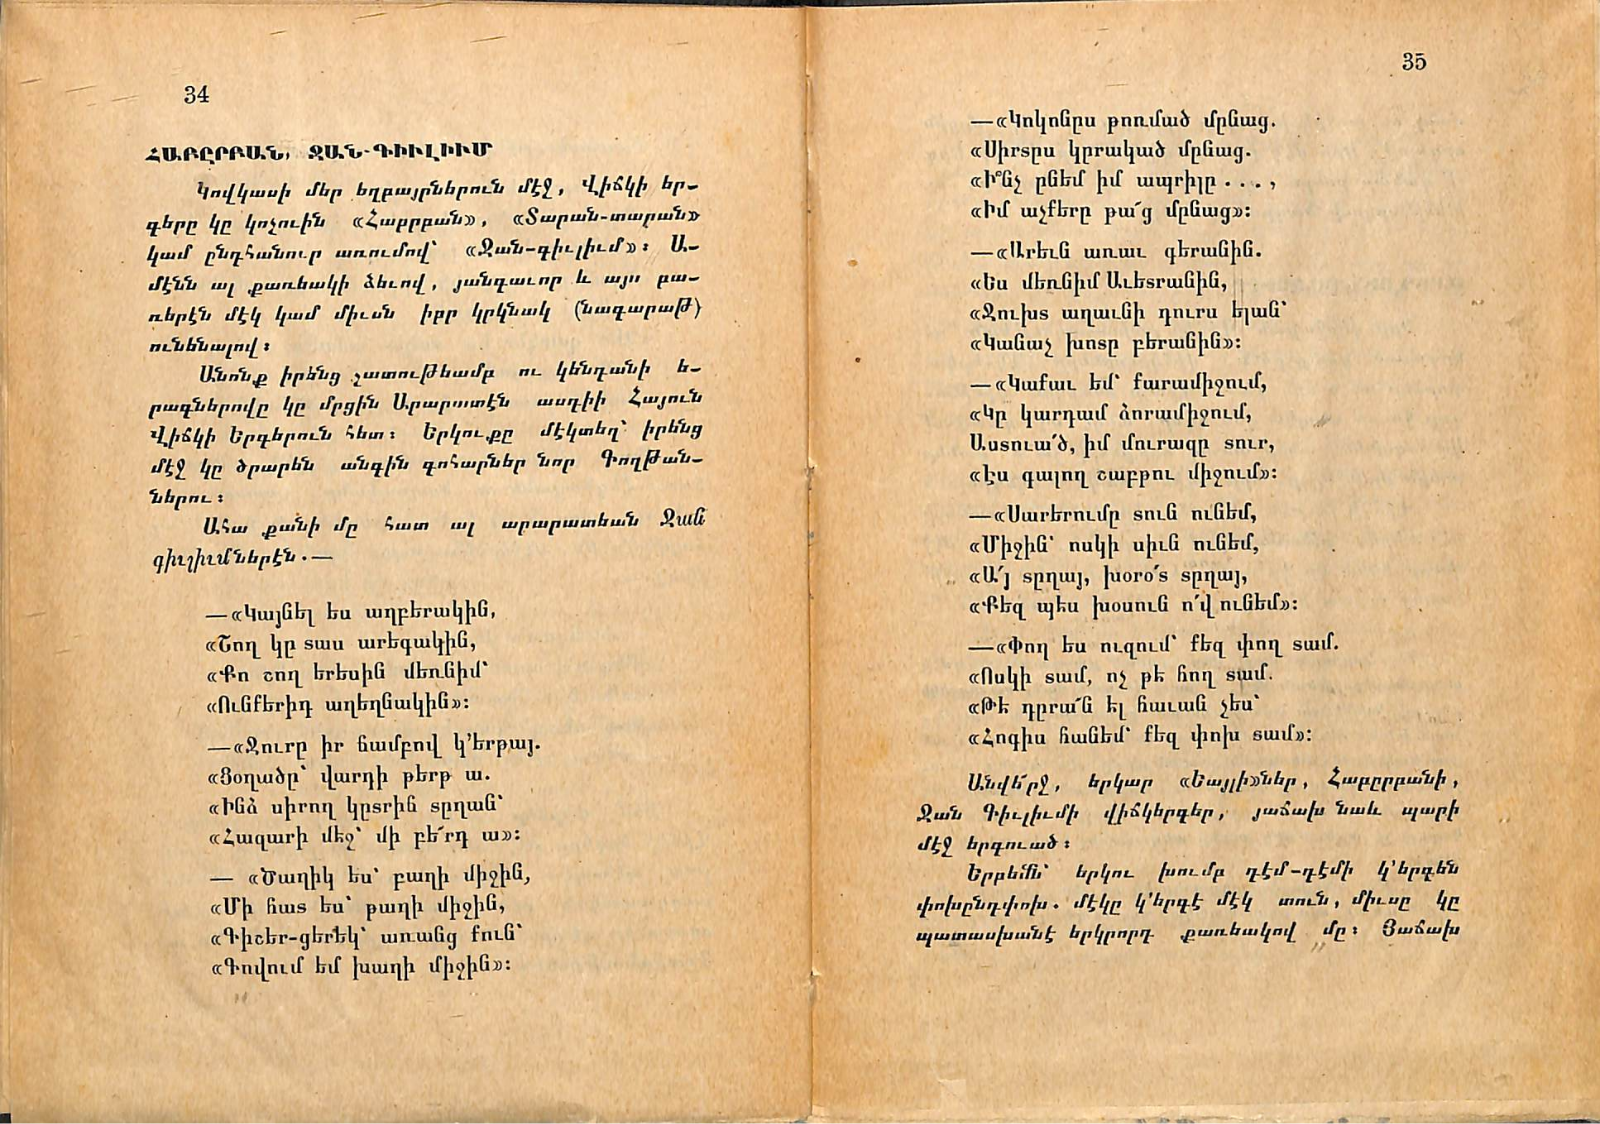 34
ՀԱԲԸՐԲԱՆ, ՋԱՆ-ԳԻՒԼԻՒՄ
Կովկասի մեր եղբայրներուն մէջ, Վիճկի եր-
գերը կը կոչուին «Հաբրբան», «Տարան-տարան»
կամ ընդհանուր առումով՝ «Ջան-գիւլիւմ»։ Ա-
մէնն ալ քառեակի ձեւով, յանգաւոր և այս բա-
ռերէն մէկ կամ միւսն իբր կրկնակ (նագարաթ)
ունենալով։
Անոնք իրենց շատութեամբ ու կենդանի ե-
րագներովը կը մրցին Արարատէն ասդիի Հայուն
Վիճկի Երգերուն հետ։ Երկուքը մէկտեղ՝ իրենց
մէջ կը ծրարեն անգին գոհարներ նոր Գողթան-
ներու։
Ահա քանի մը հատ ալ արարատեան Ջան
գիւլիւմներէն.—
—«Կայնել ես աղբերակին,
«Շող կը տաս արեգակին,
«Քո շող երեսին մեռնիմ՝
«Ունքերիդ աղեղնակին»։
—«Ջուրը իր ճամբով կ՚երթայ.
«Ցօղածը՝ վարդի թերթ ա.
«Ինձ սիրող կըտրին տըղան՝
«Հազարի մեջ՝ մի բե՛րդ ա»։
— «Ծաղիկ ես՝ բաղի միջին,
«Մի հատ ես՝ թաղի միջին,
«Գիշեր-ցերեկ՝ առանց քուն՝
«Գովում եմ խաղի միջին»։
35
—«Կոկոնըս թոռմած մընաց.
«Սիրտըս կըրակած մընաց.
«Ի՞նչ ընեմ իմ ապրիլը ...,
«Իմ աչքերը թա՛ց մընաց»։
—«Արեւն առաւ գերանին.
«Ես մեռնիմ Աւետրանին,
«Ջուխտ աղաւնի դուրս ելան՝
«Կանաչ խոտը բերանին»։
—«Կաքաւ եմ՝ քարամիջում,
«Կը կարդամ ձորամիջում,
Աստուա՛ծ, իմ մուրազը տուր,
«Էս գալող շաբթու միջում»։
—«Սարերումը տուն ունեմ,
«Միջին՝ ոսկի սիւն ունեմ,
«Ա՛յ տըղայ, խօրօ՛տ տըղայ,
«Քեզ պես խօսուն ո՛վ ունեմ»։
—«Փող ես ուզում՝ քեզ փող տամ.
«Ոսկի տամ, ոչ թե հող տամ.
«Թե դըրա՛ն ել հաւան չես՝
«Հոգիս հանեմ՝ քեզ փոխ տամ»։
Անվե՛րջ, երկար «Եայլի»ներ, Հաբըրբանի,
Ջան Գիւլիւմի վիճկերգեր, յաճախ նաև պարի
մէջ երգուած։
Երբեմն՝ երկու խումբ դէմ-դէմի կ՚երգեն
փոխընդփոխ. մէկը կ՚երգէ մէկ տուն, միւսը կը
պատասխանէ երկրորդ քառեակով մը։ Յաճախ